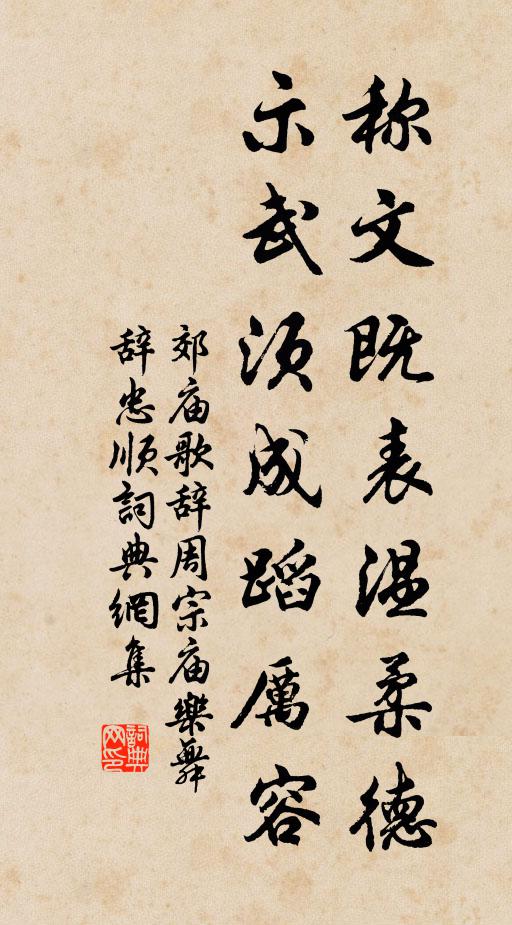 称文既表温柔德
示武须成蹈厲容
郊庙歌辞周宗庙樂舞
辞忠順詞典網集
詞典
网印